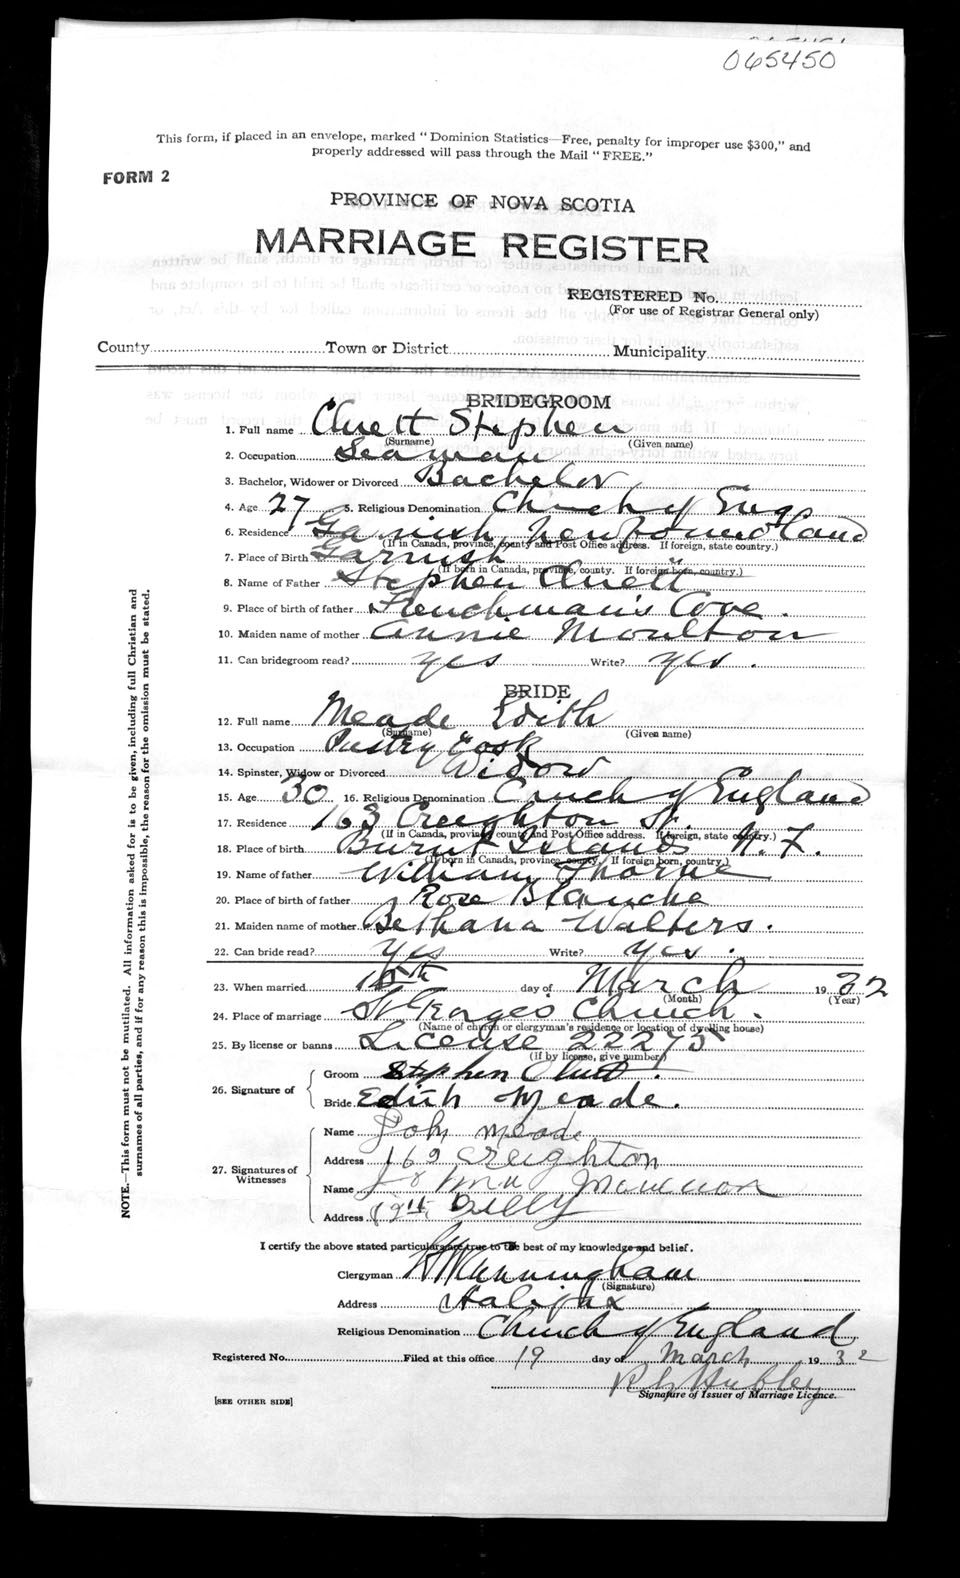 065450
This form, if placed in an envelope, marked "Dominion Statistics—Free, penalty for improper use $300," and
properly addressed will pass through the Mail "FREE."
FORM 2
PROVINCE OF NOVA SCOTIA
MARRIAGE REGISTER
REGISTERED No.
(For use of Registrar General only)
County Town or District Municipality
BRIDEGROOM
1. Full name Cluett Stephen
(Surname) (Given name)
2. Occupation Seaman
3. Bachelor, Widower or Divorced Bachelor
4. Age 27 5. Religious Denomination Church of Eng
6. Residence Garnish, Newfoundland
(If in Canada, province, county and Post Office address. If foreign, state country.)
7. Place of Birth Garnish
(If born in Canada, province, county. If foreign born, country.)
8. Name of Father Stephen Cluett
9. Place of birth of father Frenchman's Cove.
10. Maiden name of mother Annie Moulton
11. Can bridegroom read? yes Write? yes.
BRIDE
12. Full name Meade Edith
(Surname) (Given name)
13. Occupation Pastry Cook
14. Spinster, Widow or Divorced Widow
15. Age 30 16. Religious Denomination Church of England
17. Residence 163 Creighton St.
(If in Canada, province, county and Post Office address. If foreign, state country.)
18. Place of birth Burnt Islands N.F.
(If born in Canada, province, county. If foreign born, country.)
19. Name of father William Thorne
20. Place of birth of father Rose Blanche
21. Maiden name of mother Bethana Walters.
22. Can bride read? Yes Write? yes.
23. When married 15th day of March 1932
(Month) (Year)
24. Place of marriage St Georges Church.
(Name of church or clergyman's residence or location of dwelling house)
25. By license or banns License 22275
(If by license, give number)
26. Signature of
Groom Stephen Cluett.
Bride Edith Meade.
27. Signatures of Witnesses
Name John Meade
Address 169 Creighton
Name
Address
I certify the above stated particulars are true to the best of my knowledge and belief.
Clergyman H W Cunningham
(Signature)
Address Halifax
Religious Denomination Church of England
Registered No. Filed at this office 19 day of March 1932
R G Hubley
Signature of Issuer of Marriage Licence.
[SEE OTHER SIDE]
NOTE.—This form must not be mutilated. All information asked for is to be given, including full Christian and
surnames of all parties, and if for any reason this is impossible, the reason for the omission must be stated.